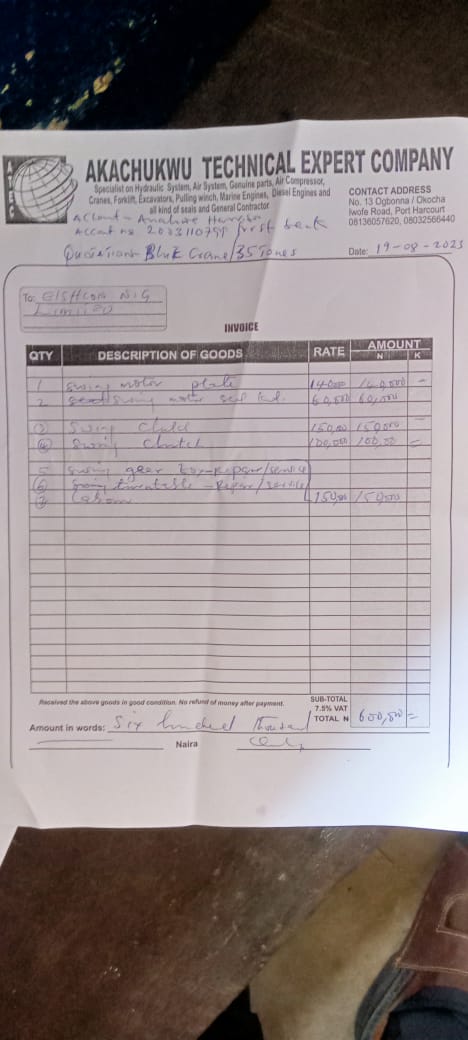 ATEC
AKACHUKWU TECHNICAL EXPERT COMPANY
Specialist on Hydraulic System, Air System, Genuine parts, Air Compressor,
Cranes, Forklift, Excavators, Pulling winch, Marine Engines, Diesel Engines and
all kind of seals and General Contractor
CONTACT ADDRESS
No. 13 Ogbonna / Okocha
Iwofe Road, Port Harcourt
08136057620, 08032566440
first bank
Crane/35 Tones
Date: 19-08-2023
To: NIG
LIMITED
INVOICE
QTY DESCRIPTION OF GOODS RATE AMOUNT
N K
1 swing motor plate 140,000 -
2 swing motor seal 60,000
3 swing 150,000 -
4 swing clutch 100,000 100,000 =
5 swing gear box - repair/service
6 swing - Repair/service
7 150,000 150,000
Received the above goods in good condition. No refund of money after payment.
SUB-TOTAL
7.5% VAT
TOTAL N 600,000 =
Amount in words: Six hundred thousand
Naira